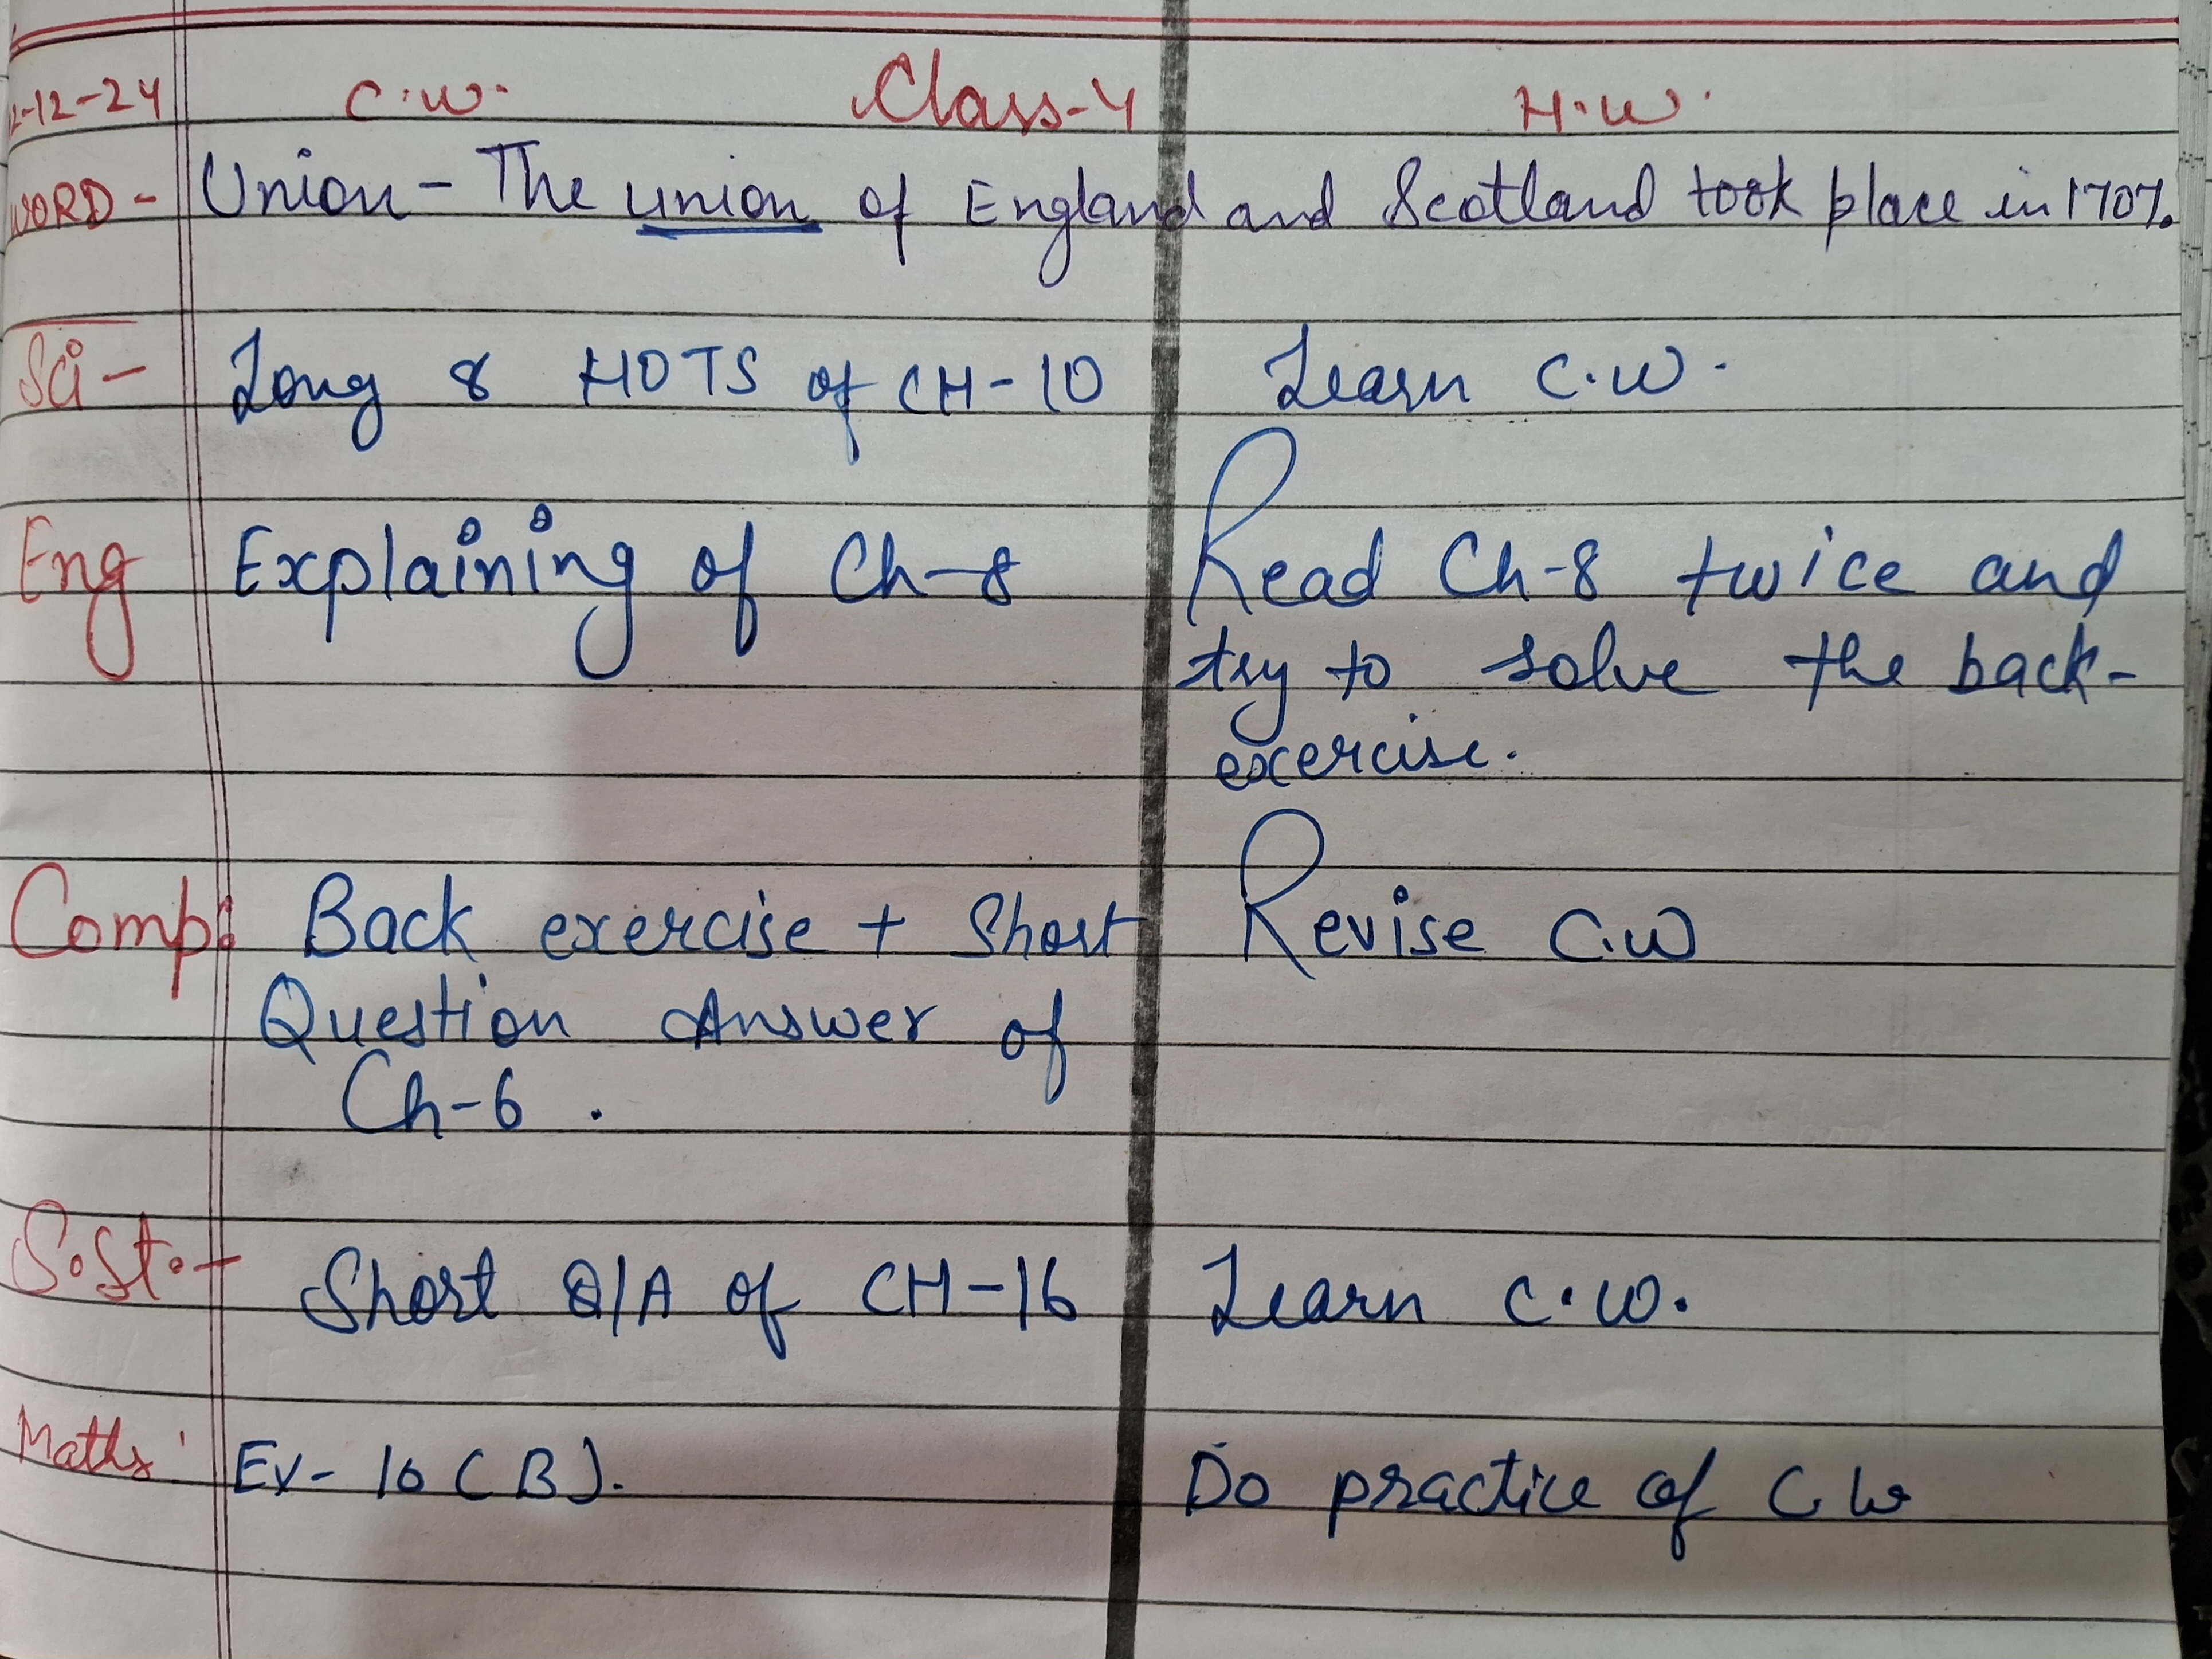 2-12-24 C.W. Class-4 H.W.
WORD - Union - The union of England and Scotland took place in 1707.
Sci - Long & HOTS of CH-10 Learn C.W.
Eng Explaining of Ch-8 Read Ch-8 twice and
try to solve the back-
exercise.
Comp: Back exercise + Short Revise C.W
Question Answer of
Ch-6 .
S.St. - Short Q/A of CH-16 Learn C.W.
Maths: Ex- 10 (B). Do practice of C W